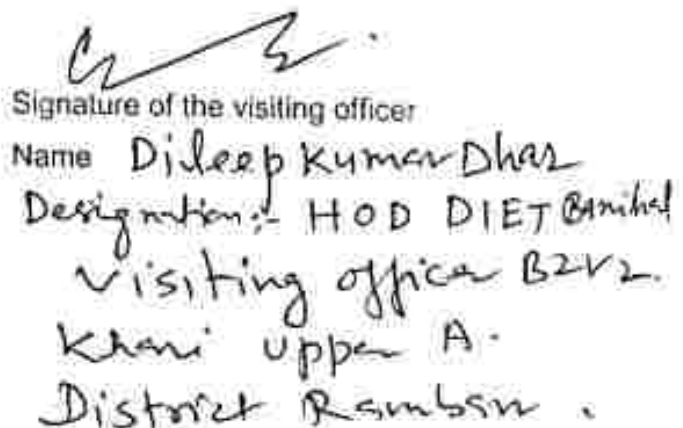 Signature of the visiting officer
Name Dileep Kumar Dhar
Designation:- HOD DIET Banihal
Visiting officer B2V2.
Khari Upper A.
District Ramban.